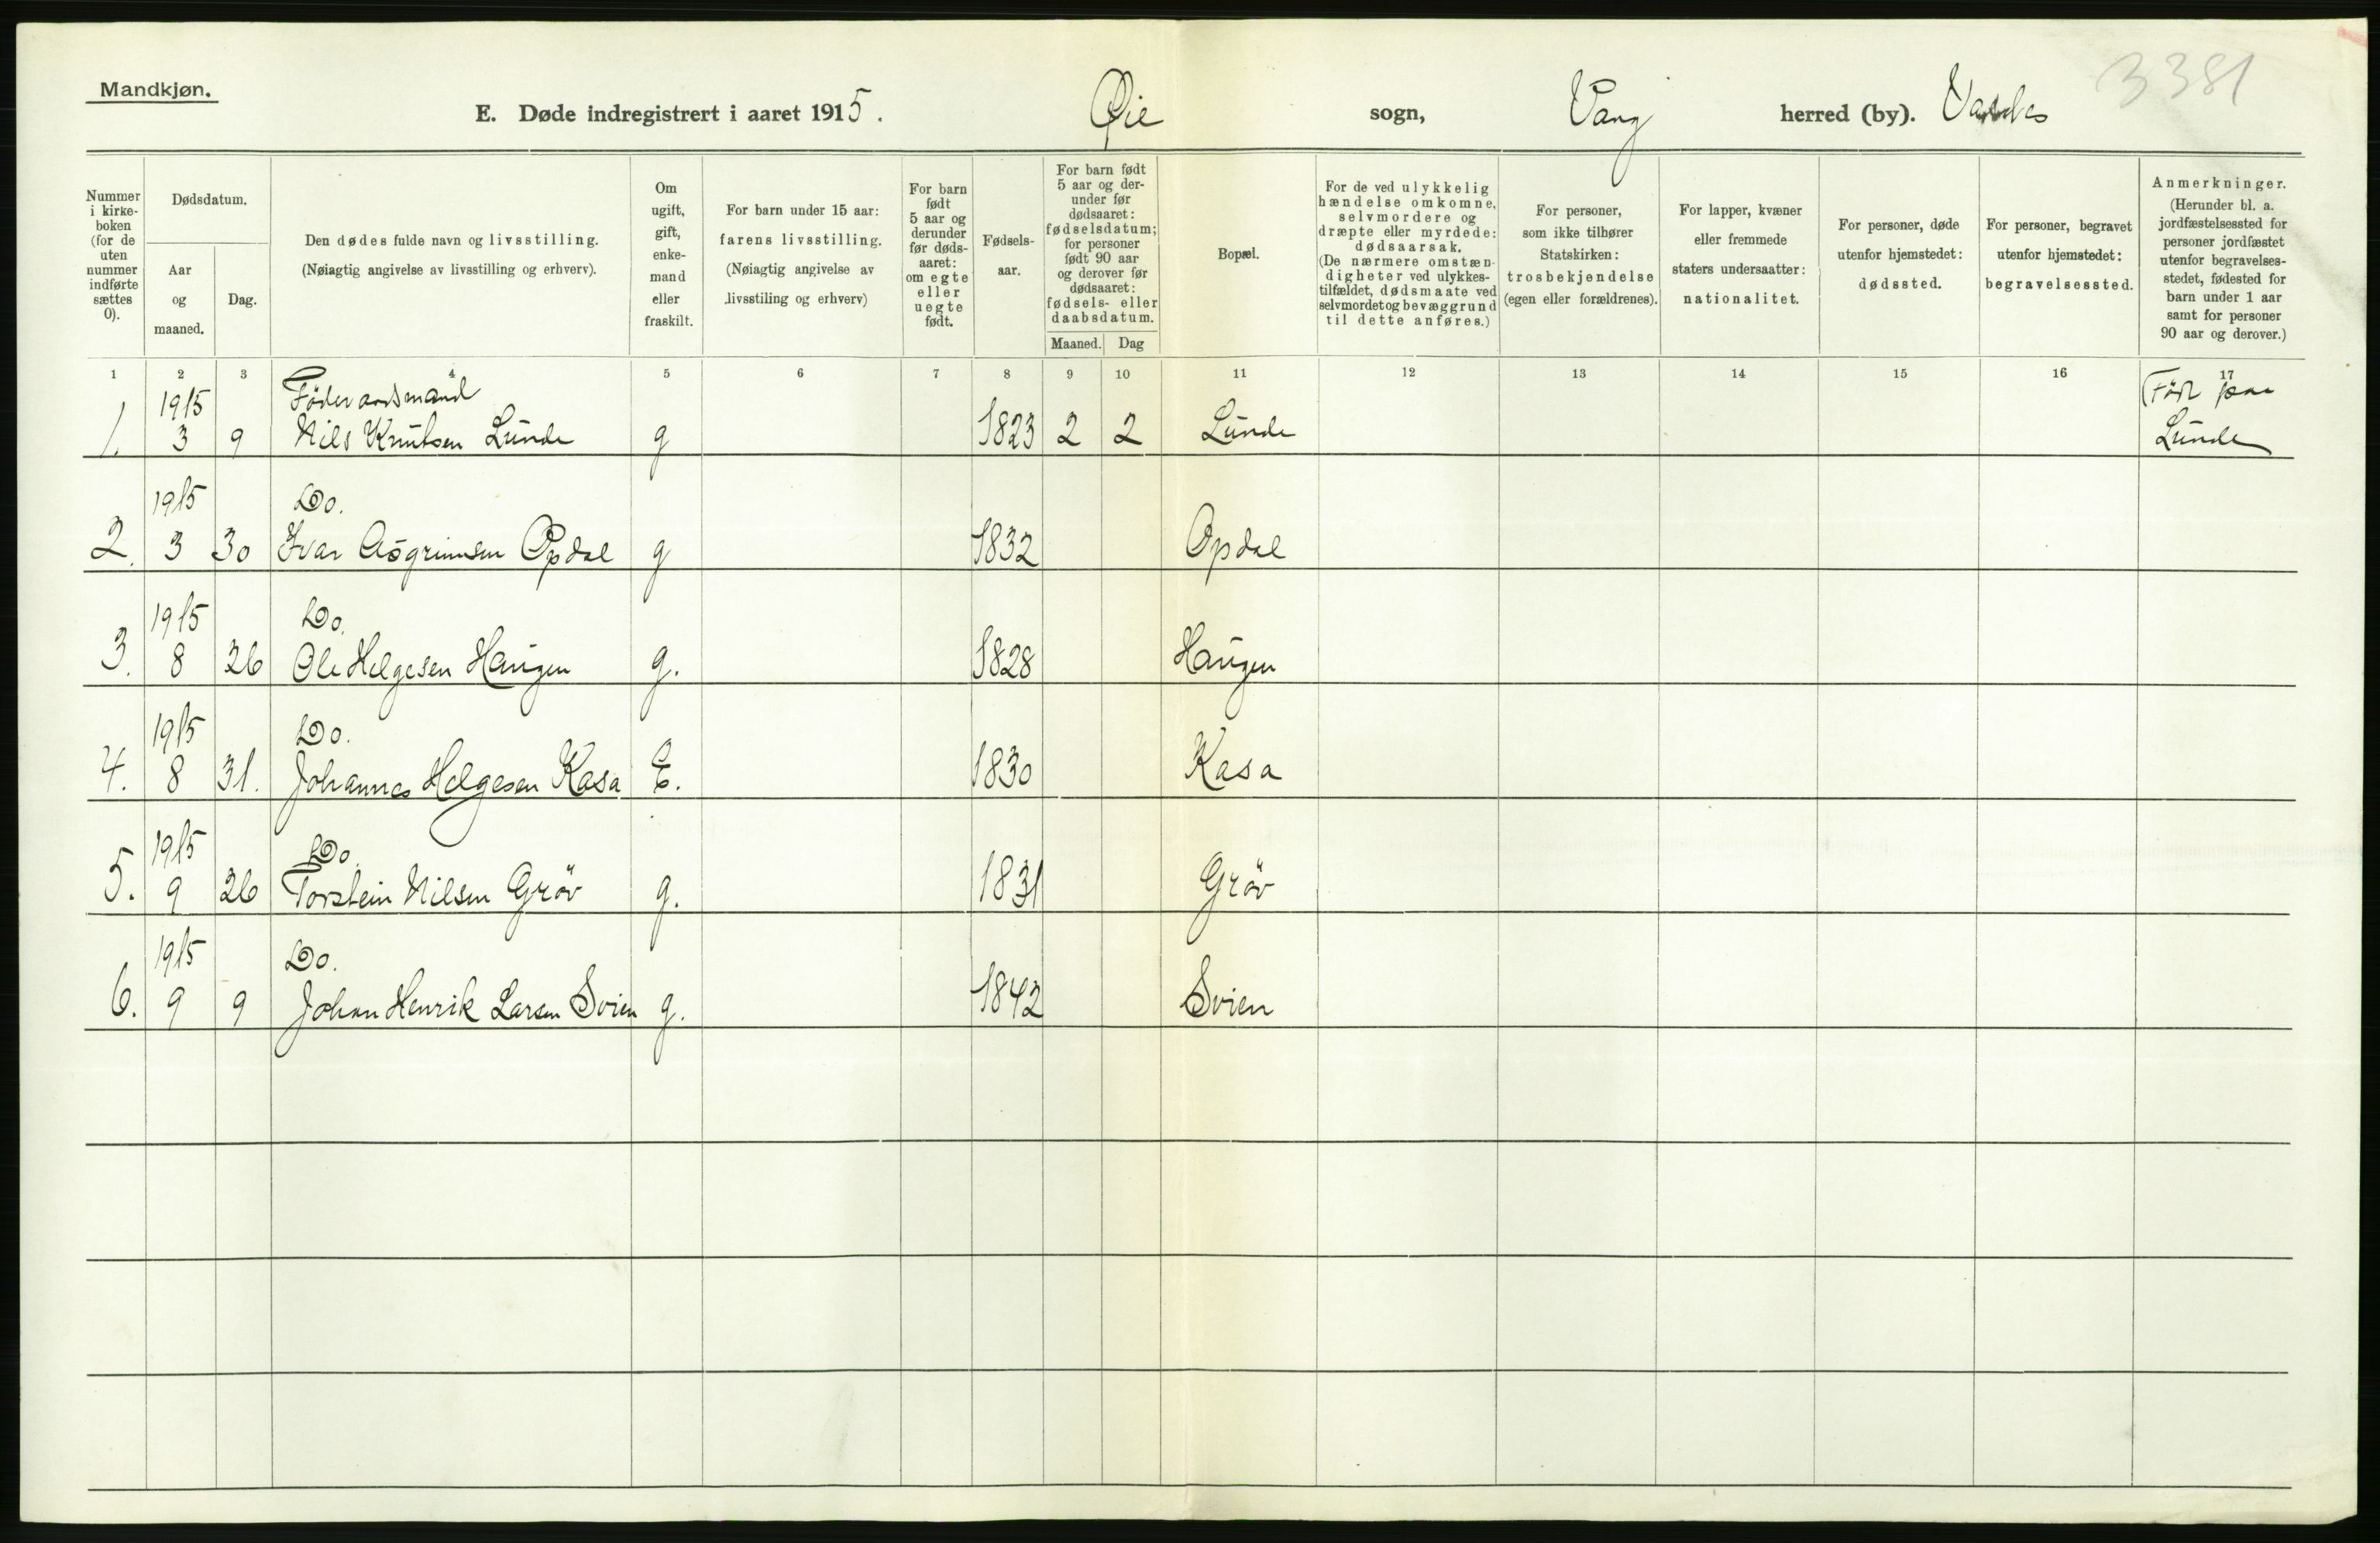 Mandkjøn.
3381
E. Døde indregistrert i aaret 1915. Øie sogn, Vang herred (by). Valdres
Nummer i kirke- boken (for de uten nummer indførte sættes 0).
Dødsdatum.
Aar og maaned.
Dag.
Den dødes fulde navn og livsstilling.
(Nøiagtig angivelse av livsstilling og erhverv).
Om ugift, gift, enke- mand eller fraskilt.
For barn under 15 aar: farens livsstilling.
(Nøiagtig angivelse av livsstiling og erhverv)
For barn født 5 aar og derunder før døds- aaret: om egte eller uegte født.
Fødsels- aar.
For barn født 5 aar og der- under før dødsaaret: fødselsdatum; for personer født 90 aar og derover før dødsaaret: fødsels- eller daabsdatum.
Maaned. Dag
Bopæl.
For de ved ulykkelig hændelse omkomne, selvmordere og dræpte eller myrdede: dødsaarsak.
(De nærmere omstæn- digheter ved ulykkes- tilfældet, dødsmaate ved selvmordet og bevæggrund til dette anføres.)
For personer, som ikke tilhører Statskirken: trosbekjendelse (egen eller forældrenes).
For lapper, kvæner eller fremmede staters undersaatter: nationalitet.
For personer, døde utenfor hjemstedet: dødssted.
For personer, begravet utenfor hjemstedet: begravelsessted.
Anmerkninger.
(Herunder bl. a. jordfæstelsessted for personer jordfæstet utenfor begravelses- stedet, fødested for barn under 1 aar samt for personer 90 aar og derover.)
1 2 3 4 5 6 7 8 9 10 11 12 13 14 15 16 17
1915 Föderaadsmand (Født paa
1. 3 9 Nils Knutsen Lunde g 1823 2 2 Lunde Lunde
1915 Do.
2. 3 30 Ivar Asgrimsen Opdal g 1832 Opdal
1915 Do.
3. 8 26 Ole Helgesen Haugen g. 1828 Haugen
1915 Do.
4. 8 31. Johannes Helgesen Kasa E. 1830 Kasa
1915 Do.
5. 9 26 Torstein Nilsen Gröv g. 1831 Gröv
1915 Do.
6. 9 9 Johan Henrik Larsen Svien g. 1842 Svien